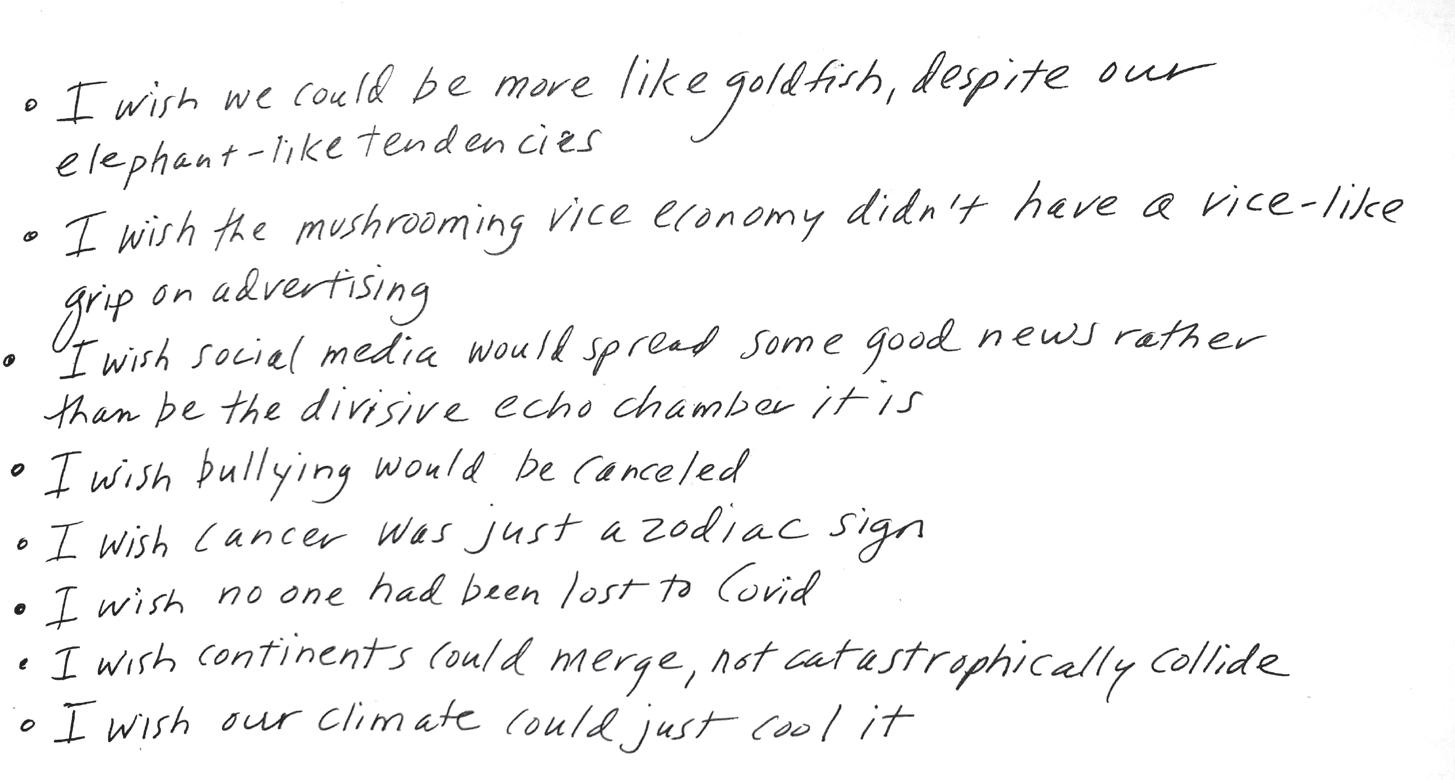 • I wish we could be more like goldfish, despite our
elephant-like tendencies
• I wish the mushrooming vice economy didn't have a vice-like
grip on advertising
• I wish social media would spread some good news rather
than be the divisive echo chamber it is
• I wish bullying would be canceled
• I wish cancer was just a zodiac sign
• I wish no one had been lost to Covid
• I wish continents could merge, not catastrophically collide
• I wish our climate could just cool it